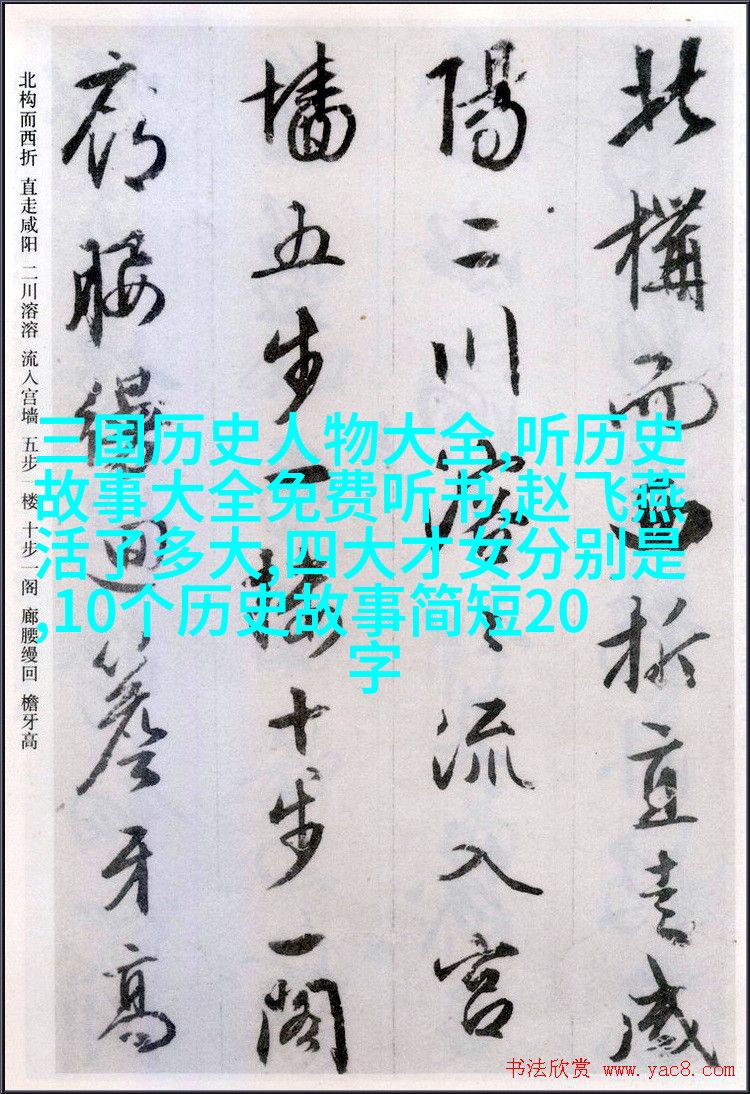 北构而西折 直走咸阳 二川溶溶 流入宫墙 五步一楼 十步一阁 廊腰缦回 檐牙高
北構而西折直走咸
陽二川溶々流入宫
墻五步一楼十步一閣
廊腰縵迴簷牙高
三国历史人物大全,听历史
故事大全免费听书,赵飞燕
活了多大,四大才女分别是
,10个历史故事简短20
字
书法欣赏 www.yac8.com